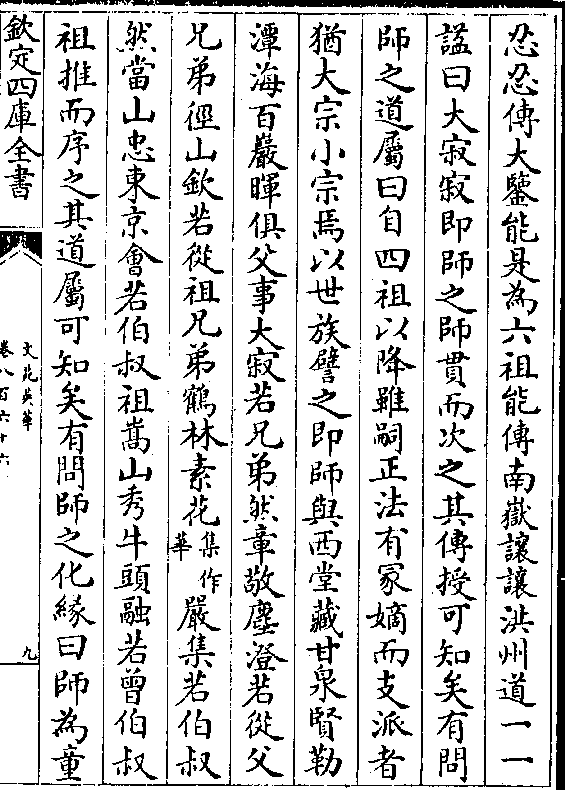 忍忍傳大鑒能是為六祖能傳南嶽讓讓洪州道一一
諡曰大寂寂即師之師貫而次之其傳授可知矣有問
師之道屬曰自四祖以降雖嗣正法有冢嫡而支派者
猶大宗小宗焉以世族譬之即師與西堂藏甘泉賢勒
潭海百巖暉俱父事大寂若兄弟然章敬塵澄若從父
兄弟徑山欽若從祖兄弟鶴林素花集作華嚴集若伯叔
然當山忠東京會若伯叔祖嵩山秀牛頭融若曾伯叔
祖推而序之其道屬可知矣有問師之化緣曰師為童
欽定四庫全書
文苑英華
卷八百六十六
九